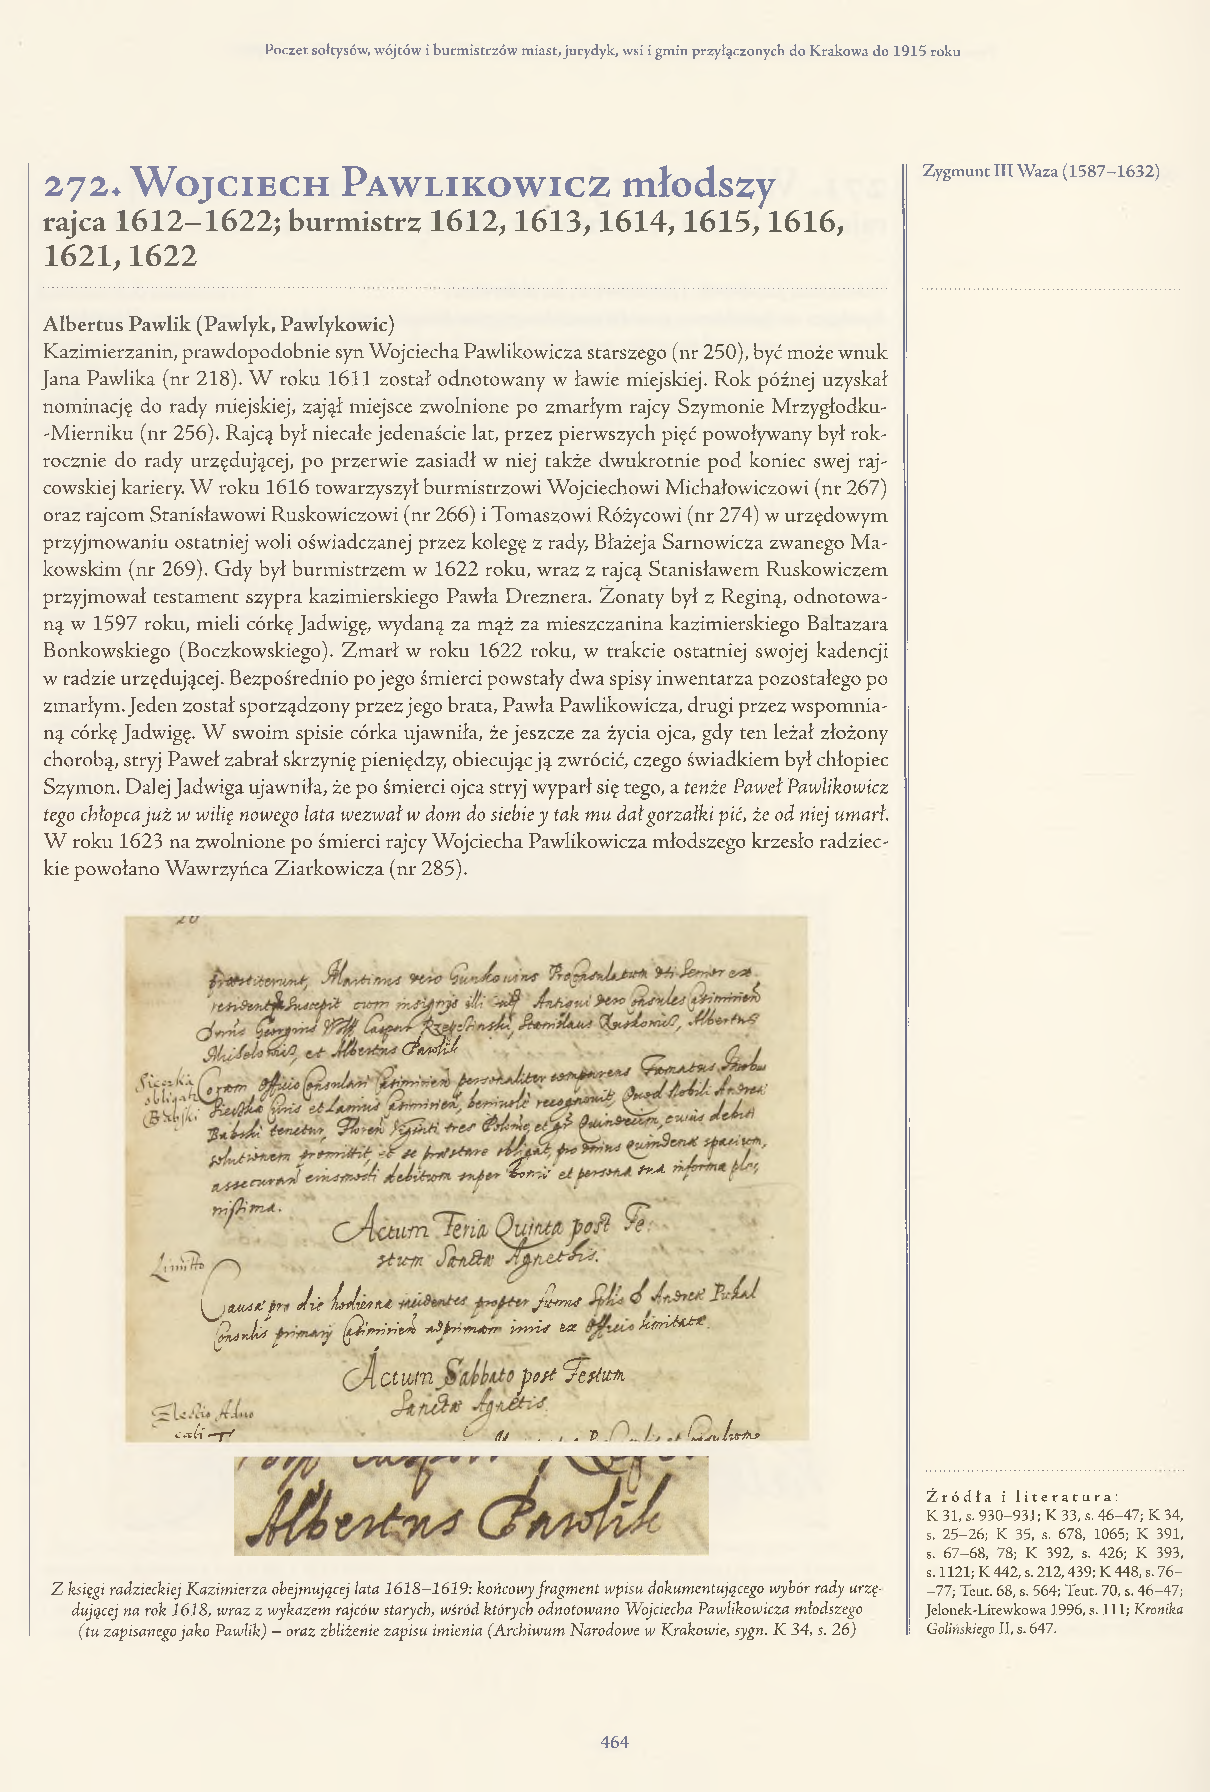 Poczet sołtysów, wójtów i burmistrzów miast, jurydyk, wsi i gmin przyłączonych do Krakowa do 1915 roku
272. Wojciech Pawlikowicz młodszy
rajca 1612–1622; burmistrz 1612, 1613, 1614, 1615, 1616,
1621, 1622
Zygmunt III Waza (1587–1632)
Albertus Pawlik (Pawlyk, Pawlykowic)
Kazimierzanin, prawdopodobnie syn Wojciecha Pawlikowicza starszego (nr 250), być może wnuk
Jana Pawlika (nr 218). W roku 1611 został odnotowany w ławie miejskiej. Rok później uzyskał
nominację do rady miejskiej, zajął miejsce zwolnione po zmarłym rajcy Szymonie Mrzygłodku-
-Mierniku (nr 256). Rajcą był niecałe jedenaście lat, przez pierwszych pięć powoływany był rok-
rocznie do rady urzędującej, po przerwie zasiadł w niej także dwukrotnie pod koniec swej raj-
cowskiej kariery. W roku 1616 towarzyszył burmistrzowi Wojciechowi Michałowiczowi (nr 267)
oraz rajcom Stanisławowi Ruskowiczowi (nr 266) i Tomaszowi Różycowi (nr 274) w urzędowym
przyjmowaniu ostatniej woli oświadczanej przez kolegę z rady, Błażeja Sarnowicza zwanego Ma-
kowskim (nr 269). Gdy był burmistrzem w 1622 roku, wraz z rajcą Stanisławem Ruskowiczem
przyjmował testament szypra kazimierskiego Pawła Dreznera. Żonaty był z Reginą, odnotowa-
ną w 1597 roku, mieli córkę Jadwigę, wydaną za mąż za mieszczanina kazimierskiego Baltazara
Bonkowskiego (Boczkowskiego). Zmarł w roku 1622 roku, w trakcie ostatniej swojej kadencji
w radzie urzędującej. Bezpośrednio po jego śmierci powstały dwa spisy inwentarza pozostałego po
zmarłym. Jeden został sporządzony przez jego brata, Pawła Pawlikowicza, drugi przez wspomnia-
ną córkę Jadwigę. W swoim spisie córka ujawniła, że jeszcze za życia ojca, gdy ten leżał złożony
chorobą, stryj Paweł zabrał skrzynię pieniędzy, obiecując ją zwrócić, czego świadkiem był chłopiec
Szymon. Dalej Jadwiga ujawniła, że po śmierci ojca stryj wyparł się tego, a tenże Paweł Pawlikowicz
tego chłopca już w wilię nowego lata wezwał w dom do siebie y tak mu dał gorzałki pić, że od niej umarł.
W roku 1623 na zwolnione po śmierci rajcy Wojciecha Pawlikowicza młodszego krzesło radziec-
kie powołano Wawrzyńca Ziarkowicza (nr 285).
Actum Feria Quinta post Fe
stum Sanctæ Agnethis.
Actum Sabbato post Festum
Sanctæ Agnetis
Albertus Pawlik
Z księgi radzieckiej Kazimierza obejmującej lata 1618–1619: końcowy fragment wpisu dokumentującego wybór rady urzę-
dującej na rok 1618, wraz z wykazem rajców starych, wśród których odnotowano Wojciecha Pawlikowicza młodszego
(tu zapisanego jako Pawlik) – oraz zbliżenie zapisu imienia (Archiwum Narodowe w Krakowie, sygn. K 34, s. 26)
Źródła i literatura:
K 31, s. 930–931; K 33, s. 46–47; K 34,
s. 25–26; K 35, s. 678, 1065; K 391,
s. 67–68, 78; K 392, s. 426; K 393,
s. 1121; K 442, s. 212, 439; K 448, s. 76–
–77; Teut. 68, s. 564; Teut. 70, s. 46–47;
Jelonek-Litewkowa 1996, s. 111; Kronika
Golińskiego II, s. 647.
464